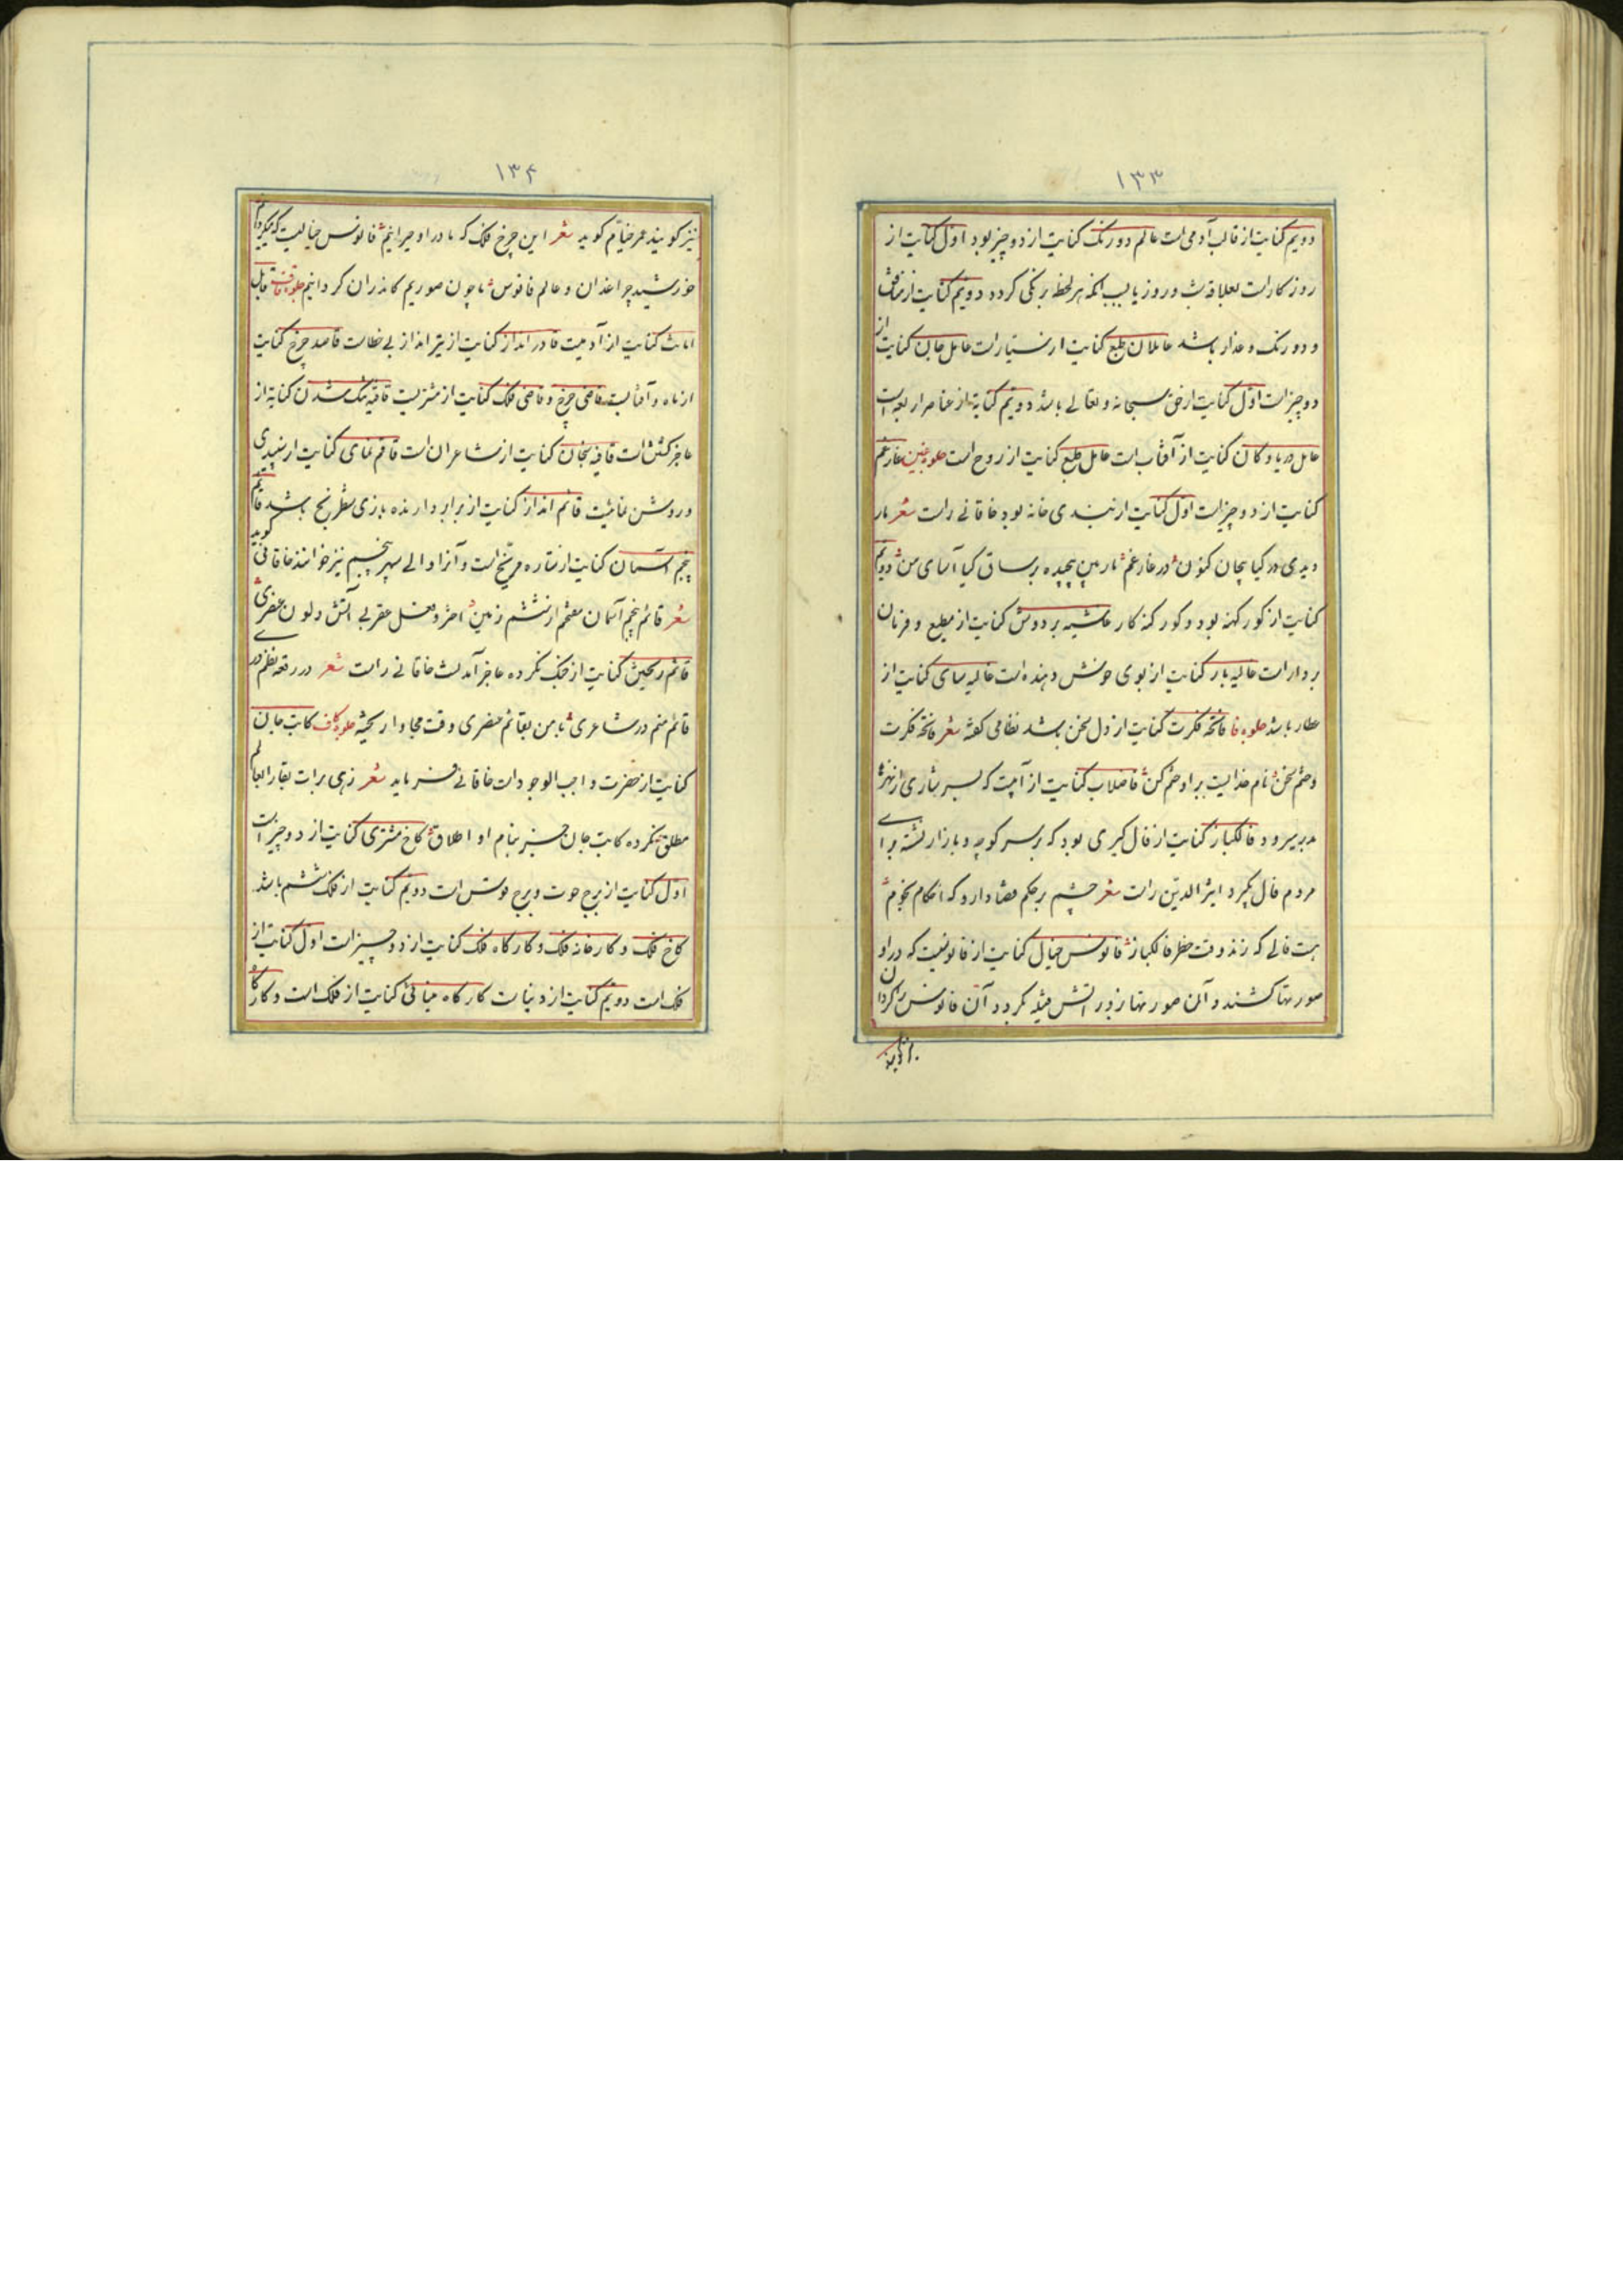 ۱۳۳
دویم کنایت از قالب آدمی است عالم دو رنک کنایت از دو چیز بود اول کنایت از
روزکار است بعلاقه شب و روز یا بسبب انکه هر لحظه برنکی کردد دویم کنایت از منافق
و دو رنک و غدار باشد عاملان طبع کنایت از سیارات عامل جان کنایت از
دو چیز است اول کنایت از حق سبحانه و تعالی باشد دویم کنایة از عناصر اربعه است
عامل دریا و کان کنایت از آفتاب است عامل طبع کنایت از روح است جلوه غین غار غم
کنایت از دو چیز است اول کنایت از بندی خانه بود خاقانی راست شعر مار
دیدی در کیا پیچان کنون در غار غم مار بین پیچیده بر ساق کیا آسای من دویم
کنایت از کور کهنه بود و کور کنه کار غاشیه بر دوش کنایت از مطیع و فرمان
بردار است غالیه بار کنایت از بوی خوش دهنده است غالیه سای کنایت از
عطار باشد جلوه فا فاتحه فکرت کنایت از دل سخن باشد نظامی کفته شعر فاتحه فکرت
و ختم سخن نام خدایست برو ختم کن فاضلاب کنایت از آبیست که بسرشاری از نهرها
بدر میرود فالکباز کنایت از فال کیری بود که بر سر کوچه و بازار نشسته برای
مردم فال کیرد اثیر الدین راست شعر چشم بر حکم قضا دارد که احکام نجوم
هست فالی که زند وقت خطر فالکباز فانوس خیال کنایت از فانوسیست که در او
صورتها کشند و آن صورتها از دور آتش فیتله کردد و آن فانوس را کردان
۱۳۴
نیز کویند عمر خیام کوید شعر این چرخ فلک که ما در او حیرانیم فانوس خیالیست که میکردانیم
خورشید چراغدان و عالم فانوس ما چون صوریم کاندران کردانیم جلوه قاف قابل
امانت کنایت از آدمیست قادر انداز کنایت از تیر انداز بی خطاست قاصد چرخ کنایت
از ماه و آفتابست قاضی چرخ و قاضی فلک کنایت از مشتریست قافیه تنک شدن کنایة از
عاجز کشتن است قافیه سنجان کنایت از شاعران است قاقم نمای کنایت از سپیدی
و روشن نمائیست قائم انداز کنایت از برابر دارنده بازی شطرنج باشد قائم
پنجم آسمان کنایت از ستاره مریخ است و آنرا والی سپهر پنجم نیز خوانند خاقانی کوید
شعر قائم پنجم آسمان منعم از ششم زمین احمر و مثل عقربی آتش و لون عصری
قائم ریختن کنایت از جنک نکرده عاجز آمدنست خاقانی راست شعر در رقعه نظم دری
قائم منم در شاعری با من بقائم عنصری وقت مجاوا ریخته جلوه کاف کاتب جان
کنایت از حضرت واجب الوجود است خاقانی فرماید شعر زهی برات بقا را ابعالم
مطلق نکرده کاتب جان جز بنام او اطلاق کاخ مشتری کنایت از دو چیز است
اول کنایت از برج حوت و برج قوس است دویم کنایت از فلک ششم باشد
کاخ فلک و کارخانه فلک و کارکاه فلک کنایت از دو چیز است اول کنایت از
فلک است دویم کنایت از دنیاست کارکاه مینائی کنایت از فلک است و کارکاه